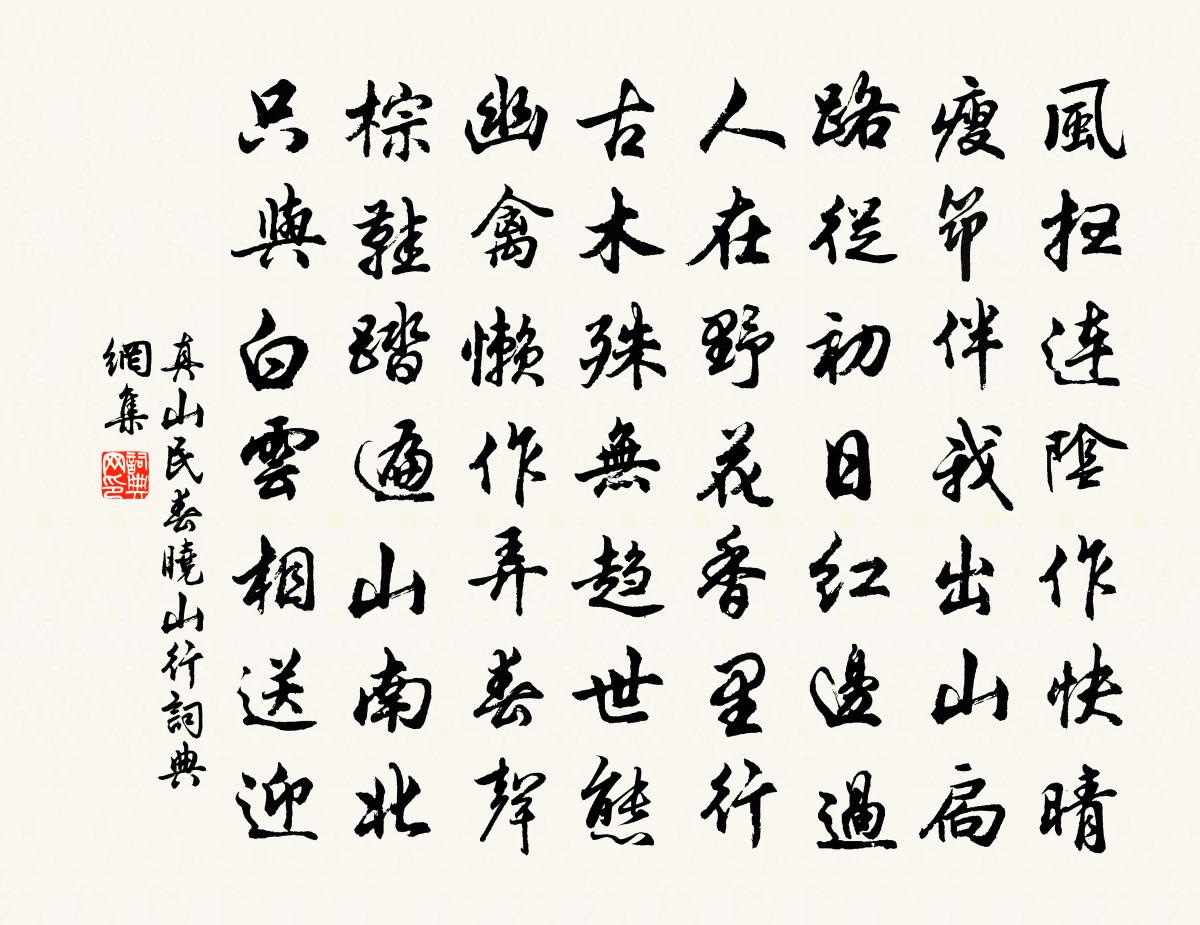 風扫連陰作快晴
瘦笻伴我出山扃
路從初日紅邊過
人在野花香里行
古木殊無趋世態
幽禽懶作弄春聲
棕鞋踏遍山南北
只與白雲相送迎
真山民春曉山行詞典
網集
詞典网印